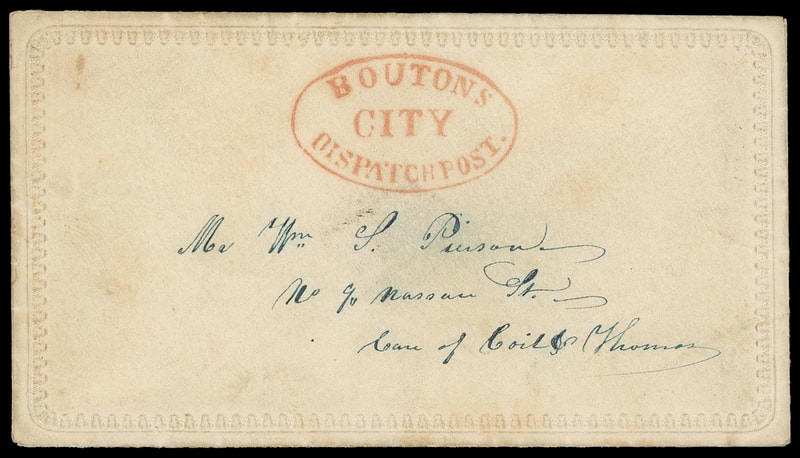 BOUTONS
CITY
DISPATCH POST.
Mr Wm. S. Pierson
No 90 Nassau St.
Care of Coit & Thomas